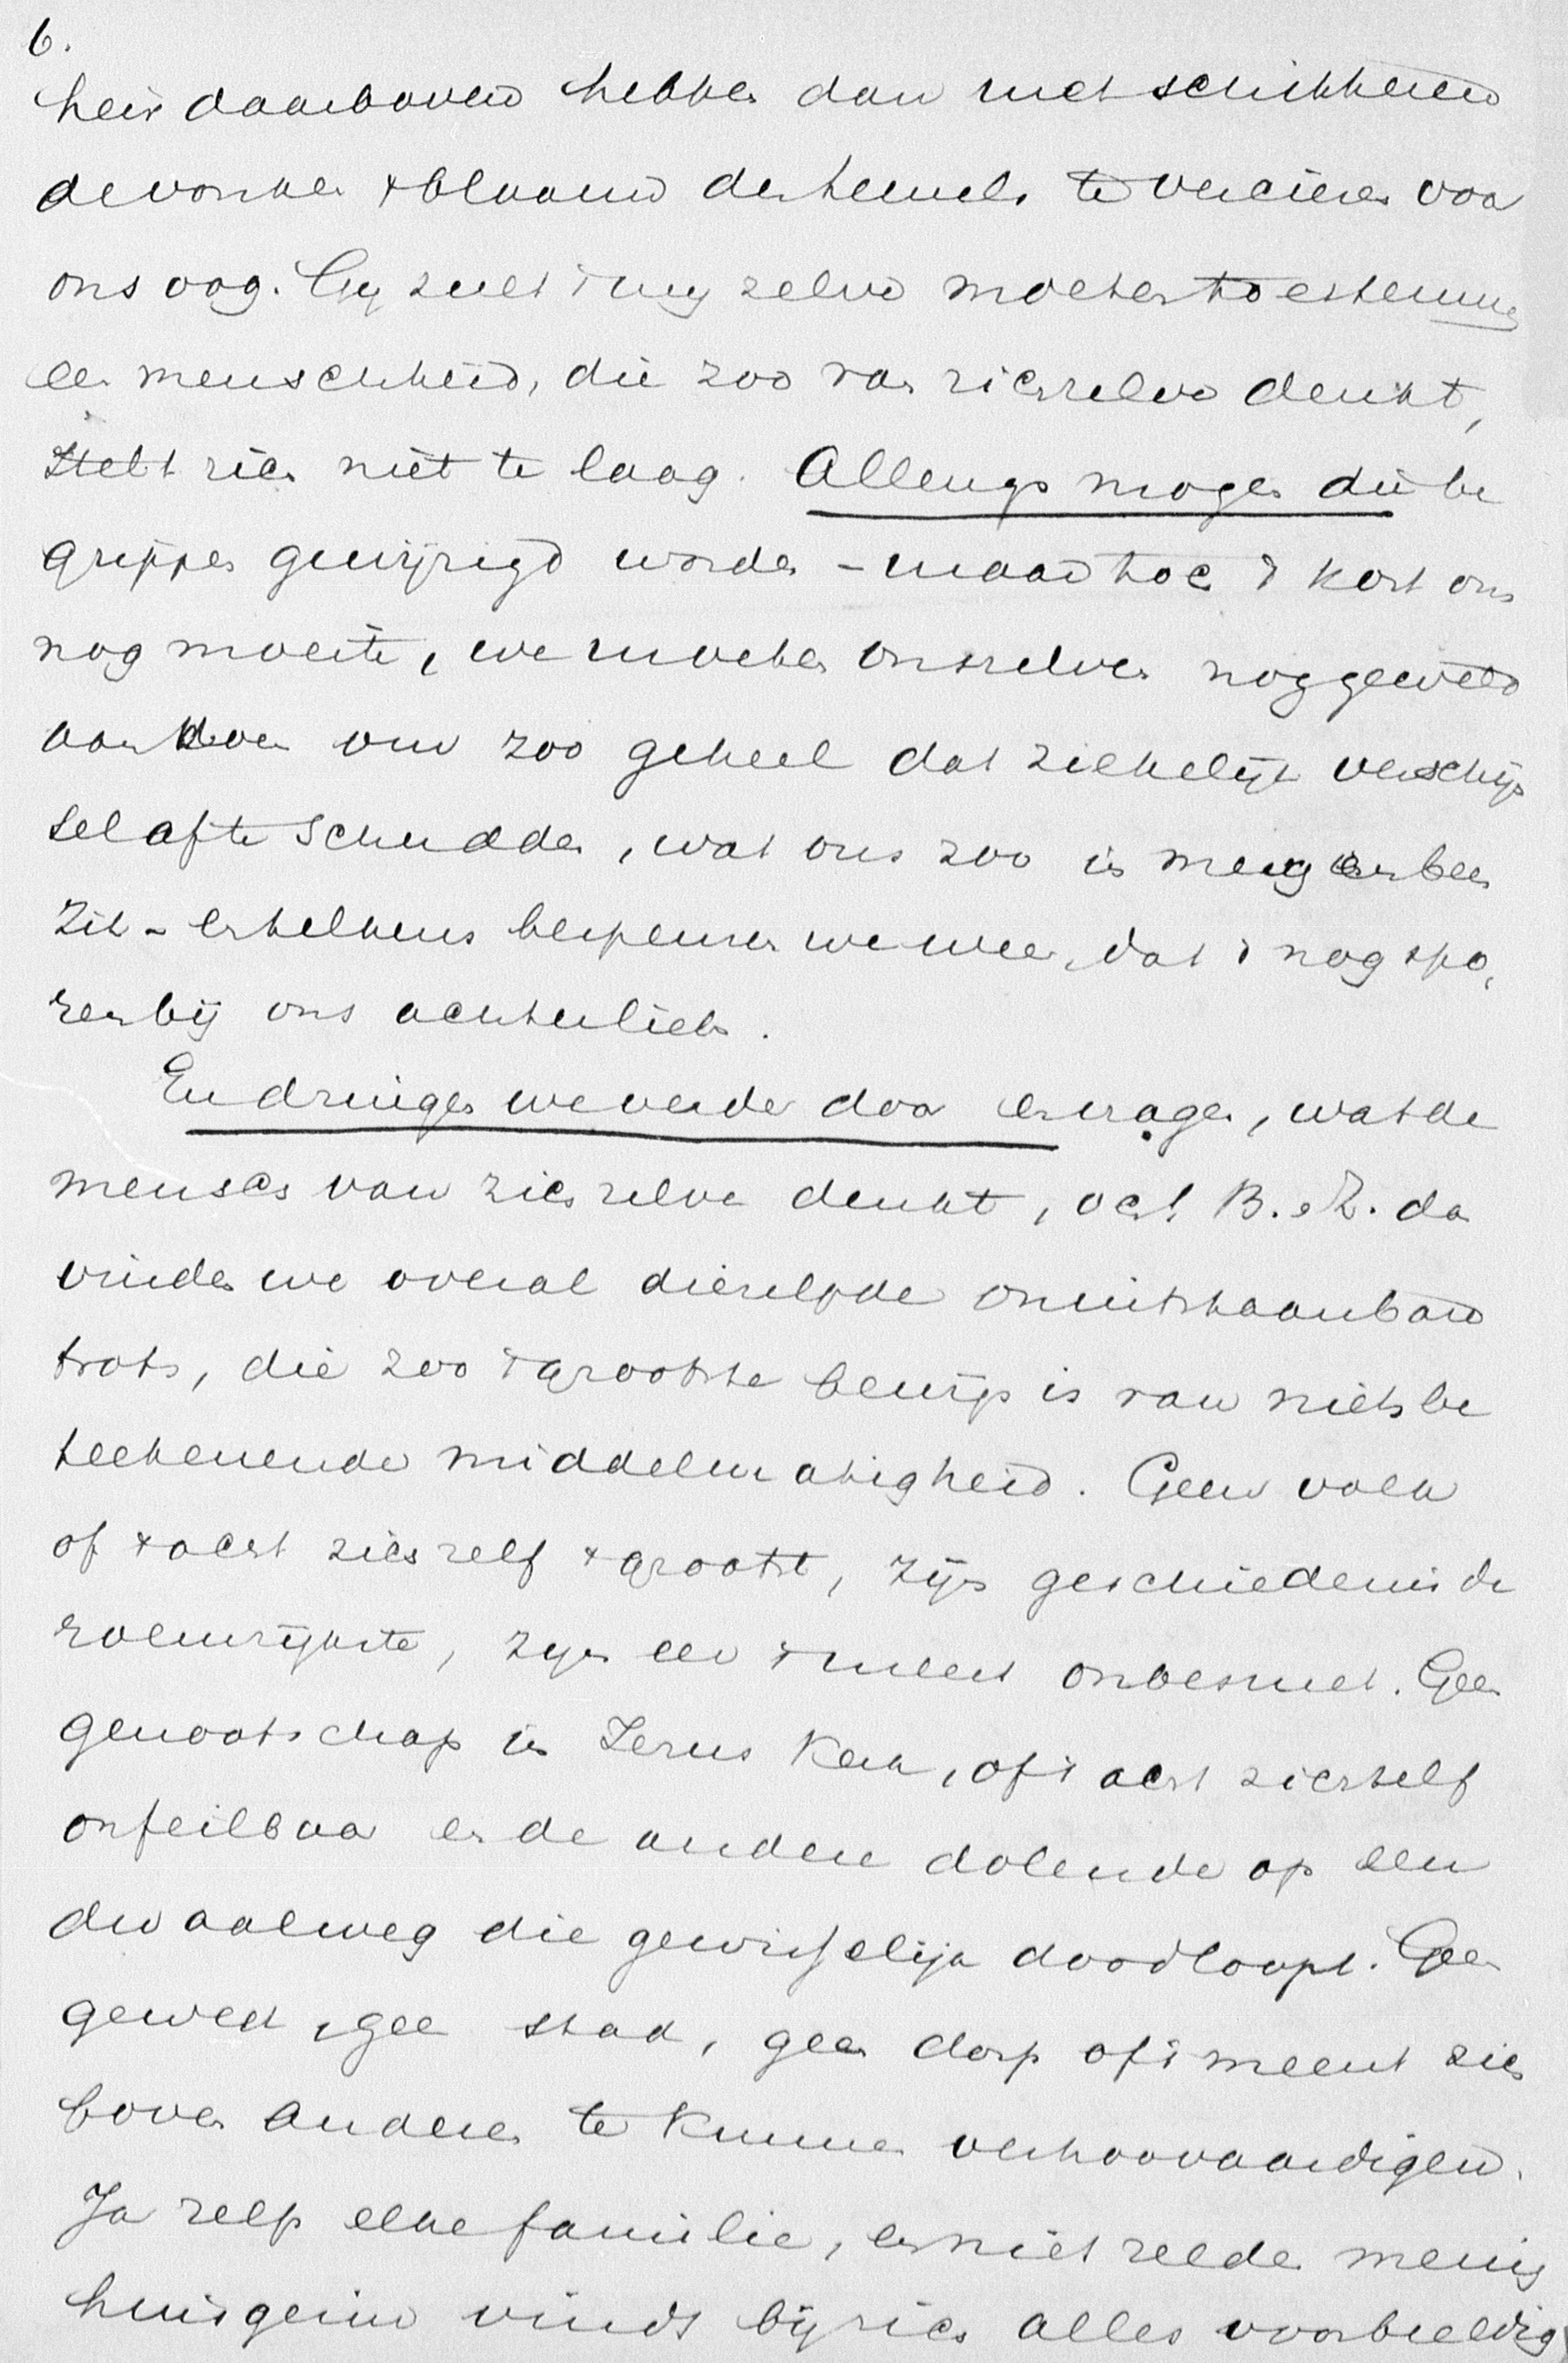 6.
heir daarboven hebben dan met schitteren
de vonken + blaauw der hemels te vercieren voor
ons oog. Gij zult mij zelve moeten toestemmen
een menschheid, die zoo van zichzelve denkt,
stelt zich niet te laag. Allengs mogen die be
grippen gewijzigd worden – maar hoe 't kost ons
nog moeite, we moeten onszelven nog geweld
aan doen om zoo geheel dat ziekelijk verschijn
sel af te schudden, wat ons zoo in merg en been
zit – en telkens bespeuren we weer, dat 't nog spo,
ren bij ons achterliet.
En dringen we verder door en vragen, wat de
mensch van zichzelve denkt, och! B. e Z. dan
vinden we overal diezelfde onuitstaanbare
trots, die zoo 't grootste bewijs is van niets be
teekenende middelmatigheid. Geen volk
of 't acht zichzelf 't grootst, zijn geschiedenis de
roemrijkste, zijn eer 't meest onbesmet. Geen
genootschap in Jezus Kerk, of 't acht zichzelf
onfeilbaar en de andere dolende op een
dwaalweg die gewisselijk doodloopt. Geen
gewest, geen stad, geen dorp of 't meent zich
boven anderen te kunnen verhoovaardigen.
Ja zelfs elke familie, en niet zelden menig
huisgezin vindt bij zich alles voorbeeldig